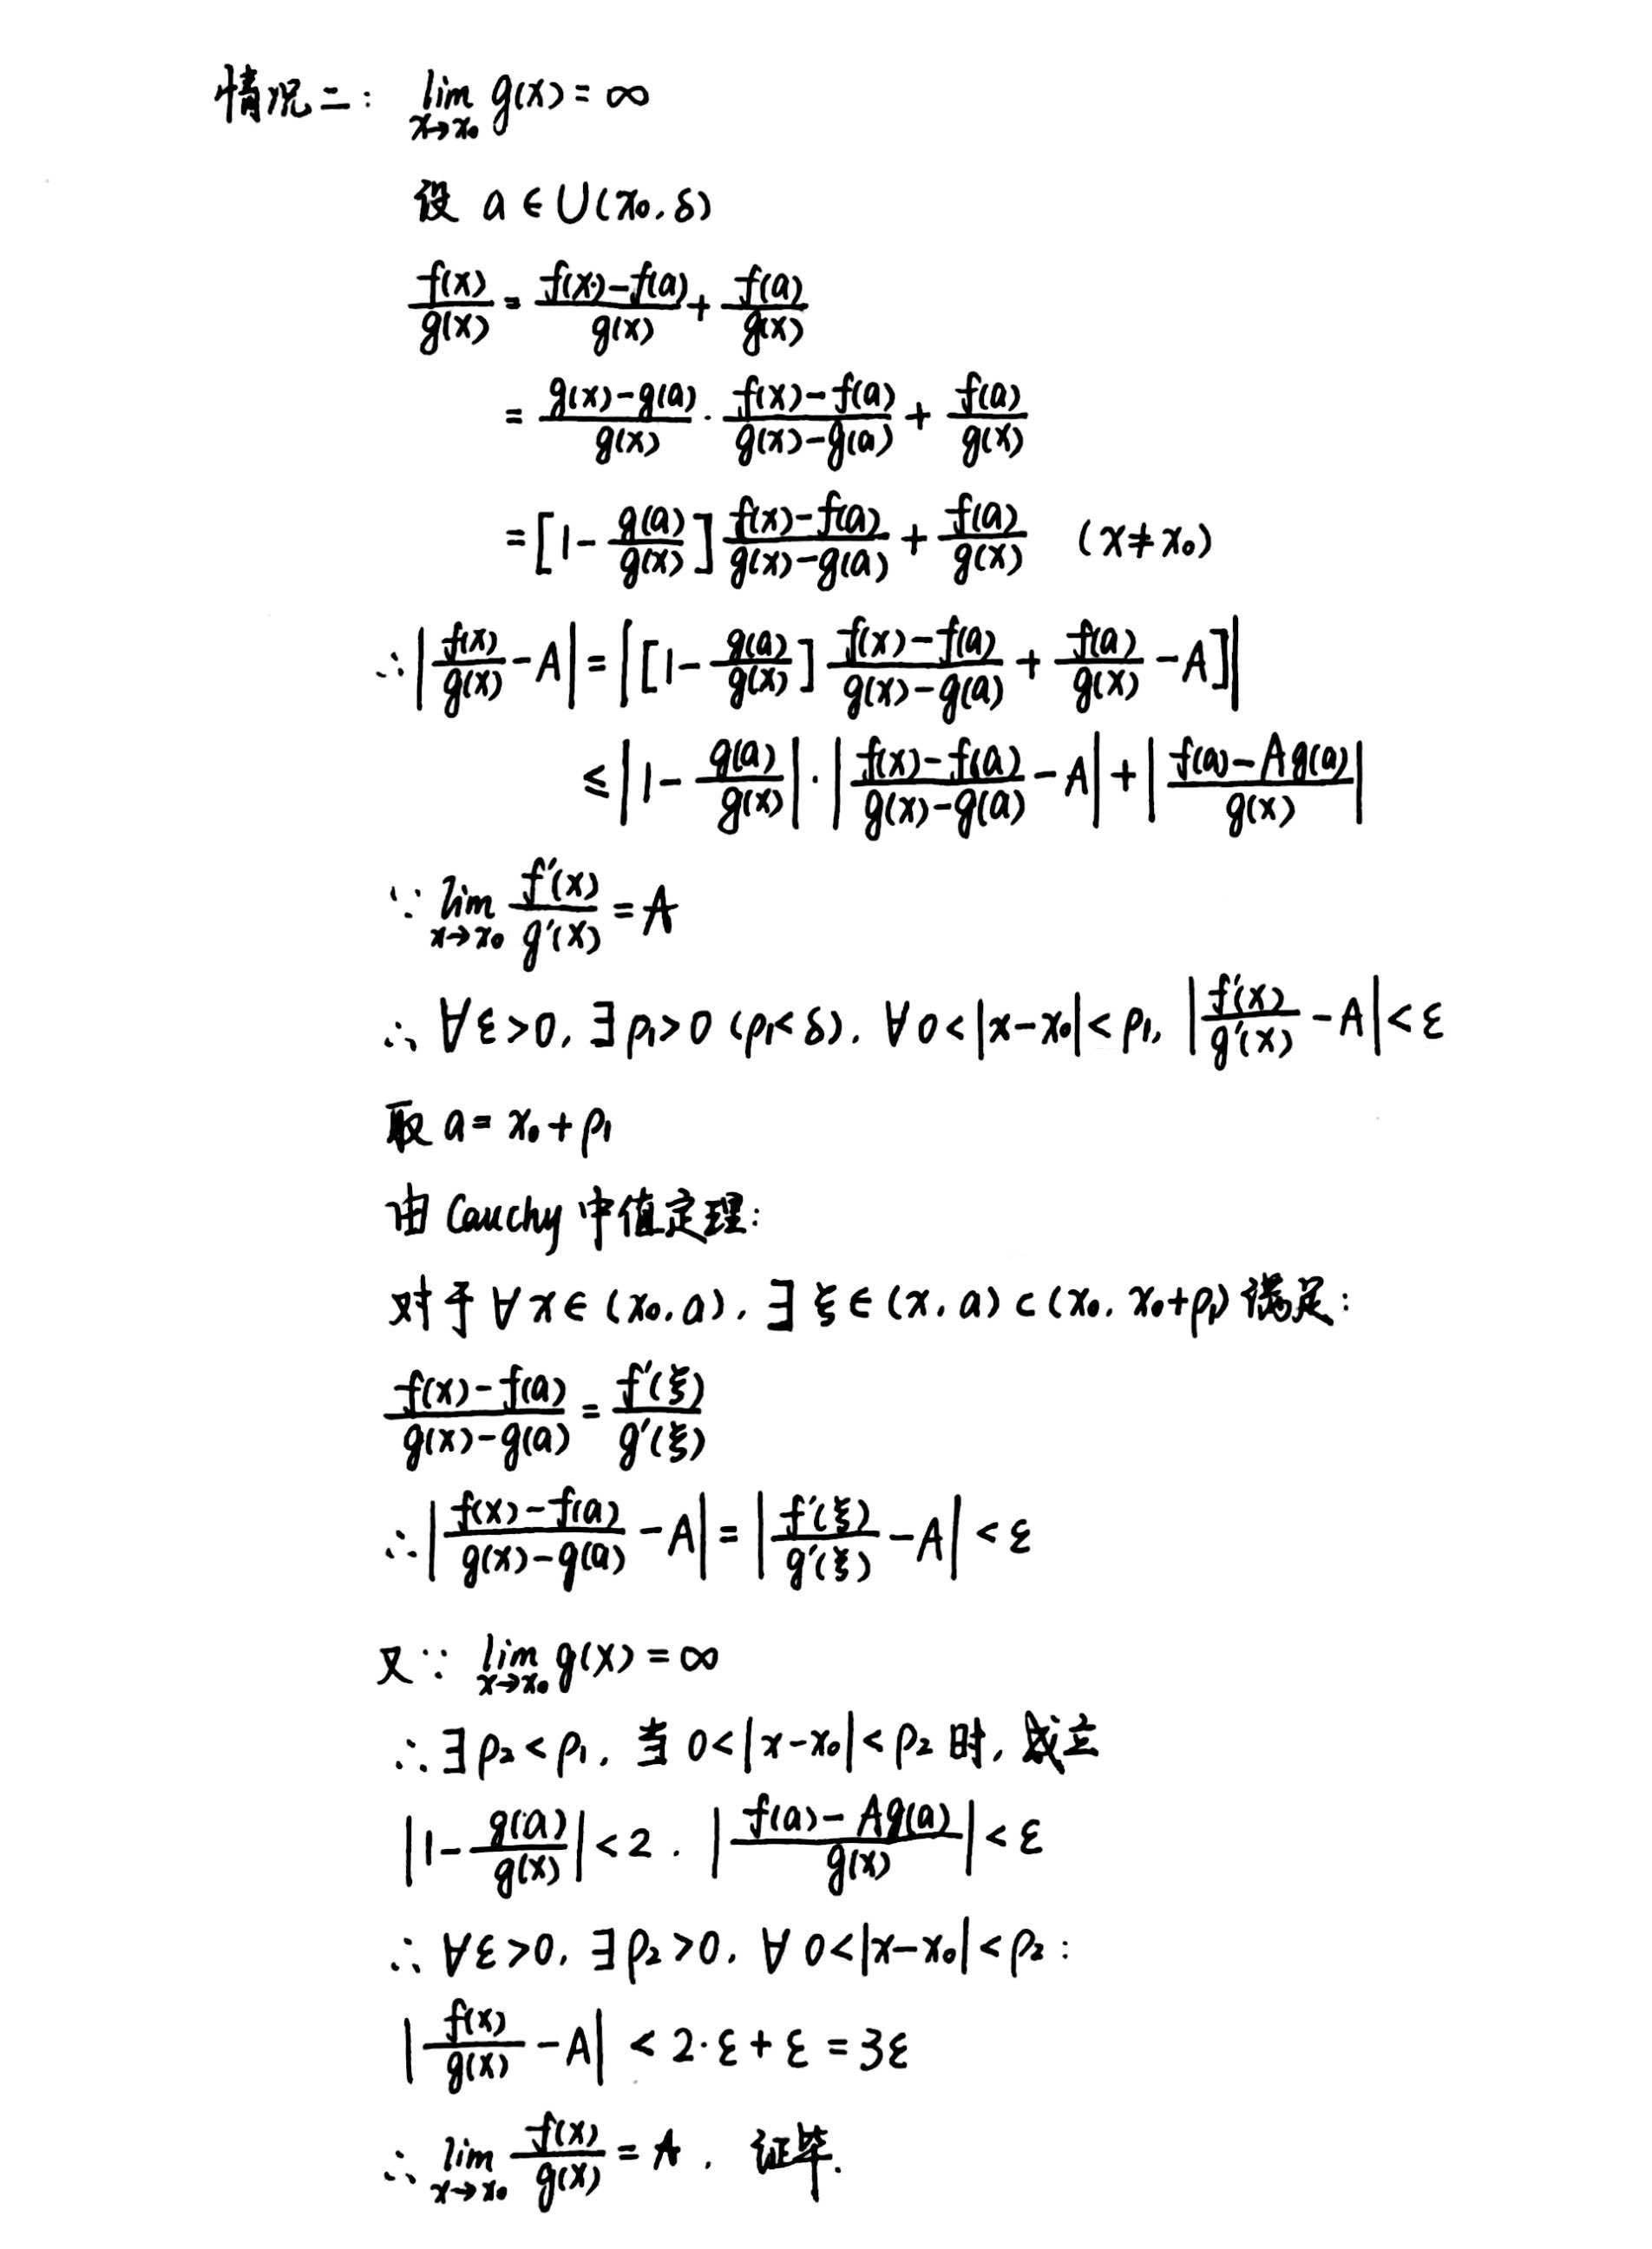 情况二: lim_{x→x₀} g(x) = ∞
设 a ∈ U(x₀, δ)
f(x)/g(x) = (f(x)-f(a))/g(x) + f(a)/g(x)
= (g(x)-g(a))/g(x) · (f(x)-f(a))/(g(x)-g(a)) + f(a)/g(x)
= [1 - g(a)/g(x)] (f(x)-f(a))/(g(x)-g(a)) + f(a)/g(x) (x≠x₀)
∴ |f(x)/g(x) - A| = |[1 - g(a)/g(x)] (f(x)-f(a))/(g(x)-g(a)) + f(a)/g(x) - A]|
≤ |1 - g(a)/g(x)| · |(f(x)-f(a))/(g(x)-g(a)) - A| + |(f(a)-Ag(a))/g(x)|
∵ lim_{x→x₀} f'(x)/g'(x) = A
∴ ∀ε>0, ∃ρ₁>0 (ρ₁<δ), ∀0<|x-x₀|<ρ₁, |f'(x)/g'(x) - A| < ε
取 a = x₀+ρ₁
由 Cauchy 中值定理:
对于 ∀x∈(x₀, a), ∃ξ∈(x, a)⊂(x₀, x₀+ρ₁) 满足:
(f(x)-f(a))/(g(x)-g(a)) = f'(ξ)/g'(ξ)
∴ |(f(x)-f(a))/(g(x)-g(a)) - A| = |f'(ξ)/g'(ξ) - A| < ε
又∵ lim_{x→x₀} g(x) = ∞
∴ ∃ρ₂<ρ₁, 当 0<|x-x₀|<ρ₂ 时, 成立
|1 - g(a)/g(x)| < 2, |(f(a)-Ag(a))/g(x)| < ε
∴ ∀ε>0, ∃ρ₂>0, ∀0<|x-x₀|<ρ₂:
|f(x)/g(x) - A| < 2·ε + ε = 3ε
∴ lim_{x→x₀} f(x)/g(x) = A. 证毕.